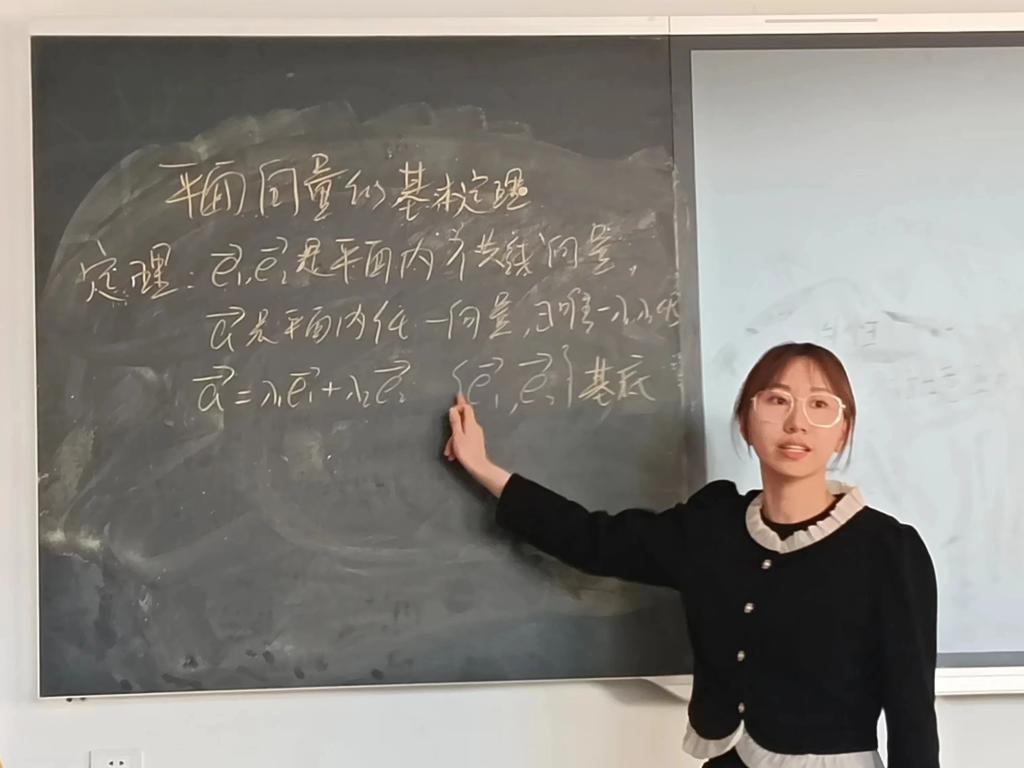 平面向量的基本定理
定理：e⃗₁,e⃗₂是平面内不共线向量,
a⃗是平面内任一向量,∃唯一λ₁λ₂使
a⃗=λ₁e⃗₁+λ₂e⃗₂ {e⃗₁,e⃗₂}基底